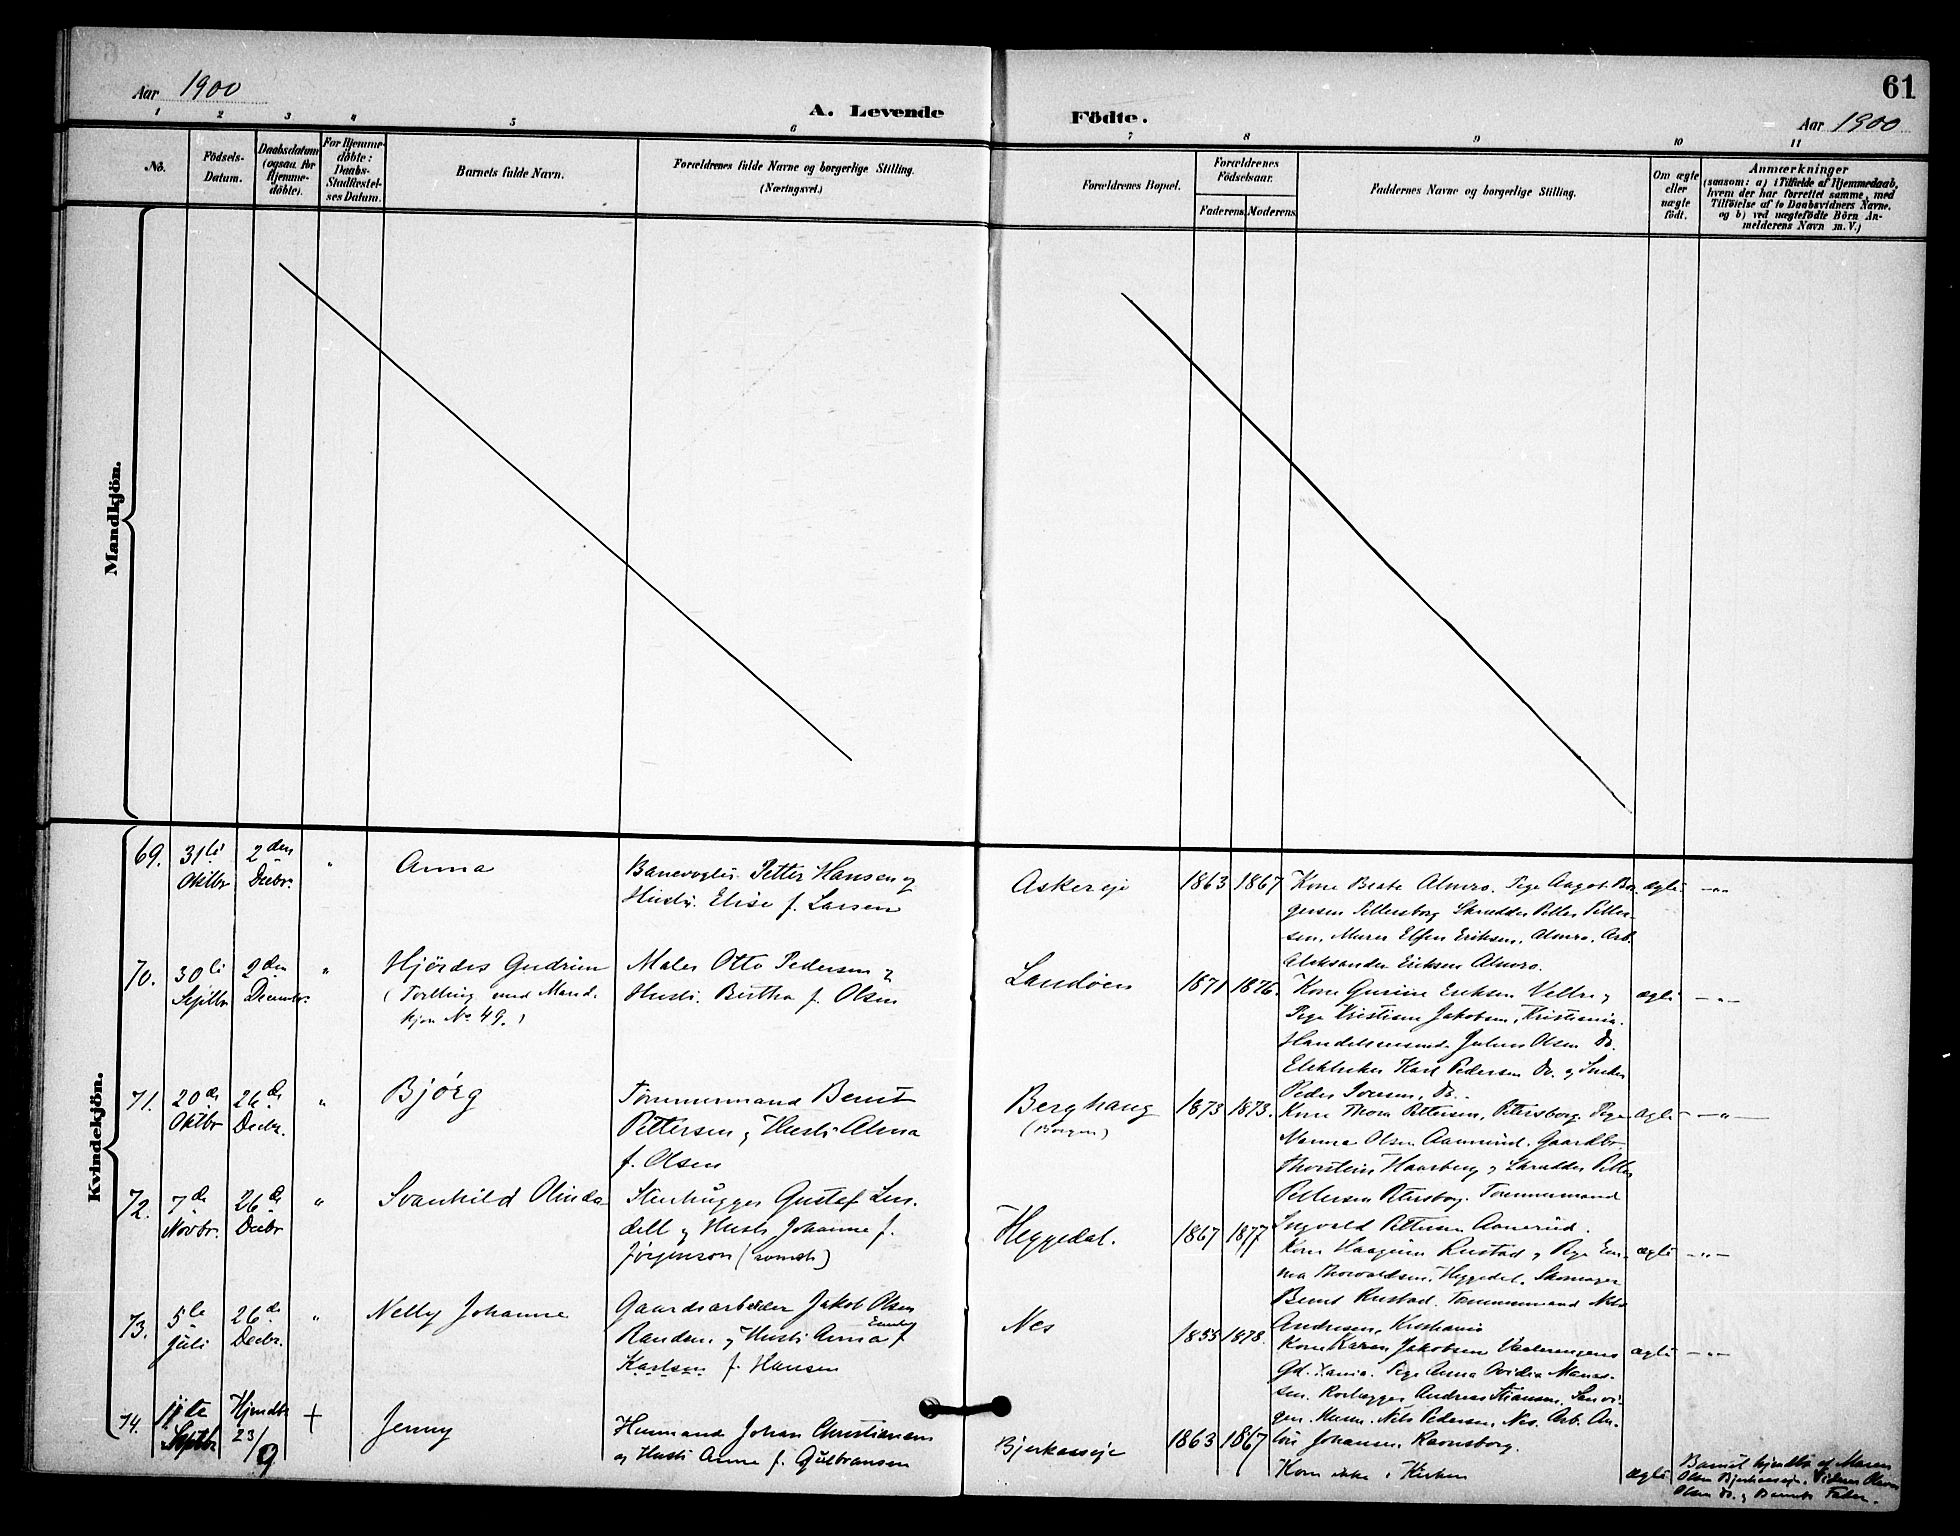 61
Aar 1900
A. Levende Födte.
Aar 1900
1 2 3 4 5 6 7 8 9 10 11
No.
Födsels-
Datum.
Daabsdatum
(ogsaa for
Hjemme-
döbte).
For Hjemme-
döbte:
Daabs-
Stadfæstel-
ses Datum.
Barnets fulde Navn.
Forældrenes fulde Navne og borgerlige Stilling.
(Næringsvei.)
Forældrenes Bopæl.
Forældrenes
Födselsaar.
Faderens. Moderens.
Faddernes Navne og borgerlige Stilling.
Om ægte
eller
uægte
födt.
Anmærkninger
(saasom: a) i Tilfælde af Hjemmedaab,
hvem der har forrettet samme, med
Tilföielse af to Daabsvidners Navne.
og b) ved uægtefödte Börn An-
melderens Navn m. V.)
Mandkjön.
Kvindekjön.
69.
31te
Oktbr
2den
Decbr.
"
Anna
Banevogter Petter Hansen og
Hustr. Elise f. Larsen
Askereje
1863
1867
Kone Beate Almro. Pige Aagot Bør-
gersen Pettersborg Skrædder Petter Petter-
sen, Murer Elfen Eriksen, Almro, Arb.
Aleksander Eriksen Almro.
ægte
—"—
70.
30te
Septbr
2den
Decembr.
"
Hjördis Gudrun
(Tvilling med Mand-
kjøn No 49.)
Maler Otto Pedersen &
Hustr. Bertha f. Olsen
Landøen
1871
1876.
Kone Gurine Eriksen Vettre og
Pige Kristine Jakobsen, Kristiania.
Handelsmand Julius Olsen Do.
Elektriker Karl Pedersen Do. og Snedker
Peder Iversen, Do.
ægte
—"—
71.
20de
Oktbr
26de
Decbr.
"
Bjørg
Tømmermand Bernt
Pettersen og Hustr. Alma
f. Olsen
Berghaug
(Borgen)
1873
1873.
Kone Thora Pettersen, Petersborg. Pige
Manna Olsen Aamerud. Gaardbr.
Thorstein Haarberg og Skrædder Petter
Pettersen Petersborg. Tømmermand
Ingvald Pettersen Aamerud.
ægte
—"—
72.
7de
Novbr.
26de
Decbr
"
Svanhild Olinda
Stenhugger Gustaf Lin-
dell og Hustr. Johanne f.
Jörgenson (svensk)
Heggedal.
1867
1877
Kone Haagine Rustad og Pige Em-
ma Thorvaldsen, Heggedal. Skomager
Bernt Rustad. Tømmermand Nils
Andresen, Kristiania
ægte
—"—
73.
5te
Juli
26de
Decbr.
"
Nelly Johanne
Gaardsarbeider Jakob Olsen
Randen. og Hustr. Anna Emilie f.
Karlsen f. Hansen
Nes
1855
1878.
Kone Karen Jakobsen Vaalerengens
Gd. Xania. Pige Anna Ovidia Manas-
sen. Rorlægger Andreas Stiansen, Sarvi-
gen. Murer Nils Pedersen, Nes. Arb. An-
ton Johansen, Ravnsborg.
ægte
—"—
74.
11te
Septbr
Hjemdbt
23/9
+
Jenny
Husmand Johan Christiansen
og Hustr. Anne f. Gulbransen
Bjerkaaseje
1863
1867
Kom ikke i Kirken
ægte
Barnet hjemdbt af Maren
Olsen Bjerkaaseje. Vidner Olava
Olsen Do. og Barnets Fader.